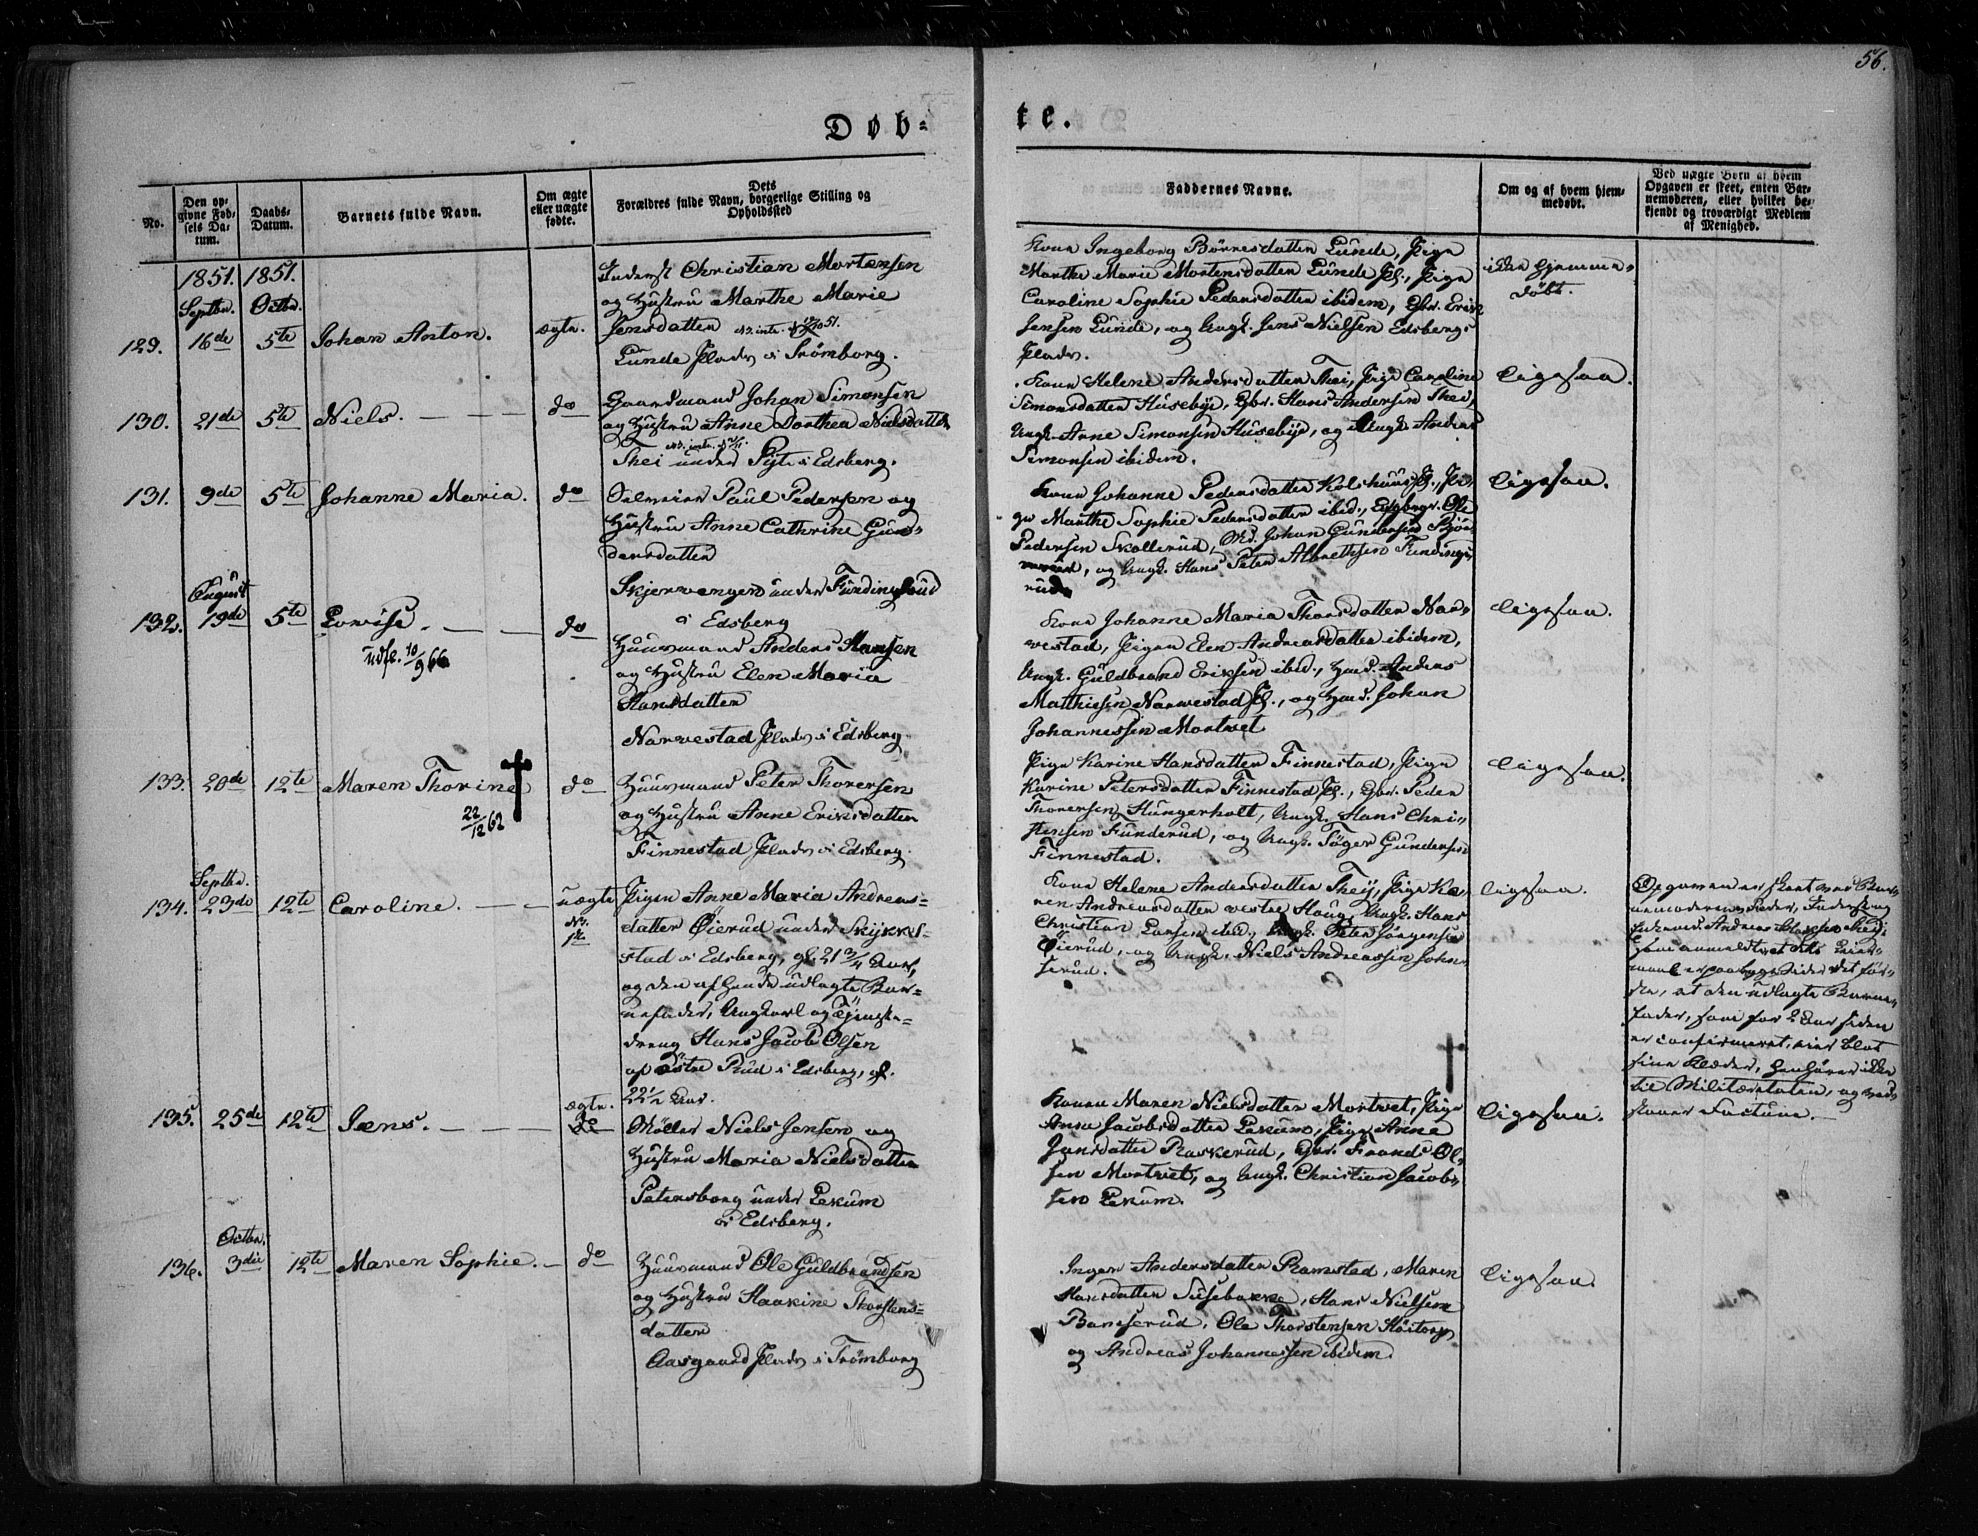 56.
Døb=
te.
No.
Den op-
givne Fød-
sels Da-
tum.
Daabs-
Datum.
Barnets fulde Navn.
Om ægte
eller uægte
fødte.
Dets
Forældres fulde Navn, borgerlige Stilling og
Opholdssted
Faddernes Navne.
Om og af hvem hjem-
medøbt.
Ved uægte Børn af hvem
Opgaven er skeet, enten Bar-
nemoderen, eller hvilket be-
kjendt og troværdigt Medlem
af Menighed.
1851. 1851.
Septbr. Octbr.
129. 16de 5te Johan Anton. ægte.
Inderst Christian Mortensen
og Hustru Marthe Marie
Jensdatter
Lunde Plads i Trømborg.
Kone Ingeborg Børresdatter Lunde, Pige
Marthe Marie Mortensdatter Lunde Pl., Pige
Caroline Sophie Pedersdatter ibidem, Gbr. Erik
Jensen Lunde, og Ungk. Jens Nielsen Edsbergs
Plads.
ikke hjemme-
døbt.
130. 21de 5te Niels. do
Gaardmand Johan Simonsen
og Hustru Anne Dorthea Nielsdatter
Skei under Syte i Edsberg.
Kone Helene Andersdatter Skei, Pige Caroline
Simonsdatter Husebye, Gbr. Hans Andersen Skei,
Ungk. Arne Simonsen Husebye, og Ungk. Anders
Simonsen ibidem.
ligesaa.
131. 9de 5te Johanne Maria. do
Paul Pedersen og
Hustru Anne Cathrine Gun-
dersdatter
Skjervangen under Fundingsrud
i Edsberg
Kone Johanne Pedersdatter Kolshuus Pl., Pi-
ge Marthe Sophie Pedersdatter ibid., Ole
Pedersen Skollerud, Johan Gundersen
og Ungk. Hans Peter Albrethsen Fundings-
rud.
ligesaa.
August
132. 19de 5te Lovise. do
udfl. 10/9 66
Huusmand Anders Hansen
og Hustru Elen Maria
Hansdatter
Narvestad Plads i Edsberg.
Kone Johanne Maria Thorsdatter Nar-
vestad, Pigen Elen Andreasdatter ibidem,
Ungk. Guldbrand Eriksen ibid., Hmd. Anders
Matthiesen Narvestad Pl., og Hmd. Johan
Johannessen Mortvet
ligesaa.
133. 20de 12te Maren Thorine do
22/12 62
Huusmand Peter Thorersen
og Hustru Anne Eriksdatter
Finnestad Plads i Edsberg.
Pige Karine Hansdatter Finnestad, Pige
Karine Petersdatter Finnestad Pl., Gbr. Peder
Thorersen Hungerholt, Ungk. Hans Chri-
stensen Funderud, og Ungk. Töger Gundersen
Finnestad.
ligesaa.
Septbr.
134. 23de 12te Caroline. uægte
Pigen Anne Maria Andreas-
datter Øierud under Skykkel-
stad i Edsberg, gl. 21 3/4 Aar,
og den af hende udlagte Bar-
nefader, Ungkarl og Tjeneste-
dreng Hans Jacob Olsen
af østre Rud i Edsberg, gl.
22 1/2 Aar.
Kone Helene Andersdatter Skeij, Pige Ka-
ren Andreasdatter vestre Haug, Ungk. Hans
Christian Larsen ibid., Ungk. Peter Jörgensen
Øierud, og Ungk. Niels Andreassen John-
serud.
ligesaa.
Opgaven er skeet ved Bar-
nemoderens Fader,
Andreas
som anmeldte
det før-
ste, at den udlagte Barne-
fader, som for 2 Aar siden
er confirmeret, eier blot
sine Klæder, henhører ikke
til Militæretaten, og ned-
skaner Factum.
135. 25de 12te Jens. ægte. do
Møller Niels Jensen og
Hustru Maria Nielsdatter
Petersborg under Lekum
i Edsberg.
Konen Maren Nielsdatter Mortvet, Pige
Anne Jacobsdatter Lekum, Pige Anne
Jansdatter Raskerud, Gbr. Frands Ol-
sen Mortvet, og Ungk. Christian Jacob-
sen Lekum.
ligesaa.
Octbr.
136. 3die 12te Maren Sophie. do
Huusmand Ole Guldbrandsen
og Hustru Haakine Thorstens-
datter
Aasgaard Plads i Trømborg
Inger Andersdatter Ramstad, Maren
Hansdatter Susebakke, Hans Nielsen
Banserud, Ole Thorstensen Höitorp
og Andreas Johannessen ibidem.
ligesaa.